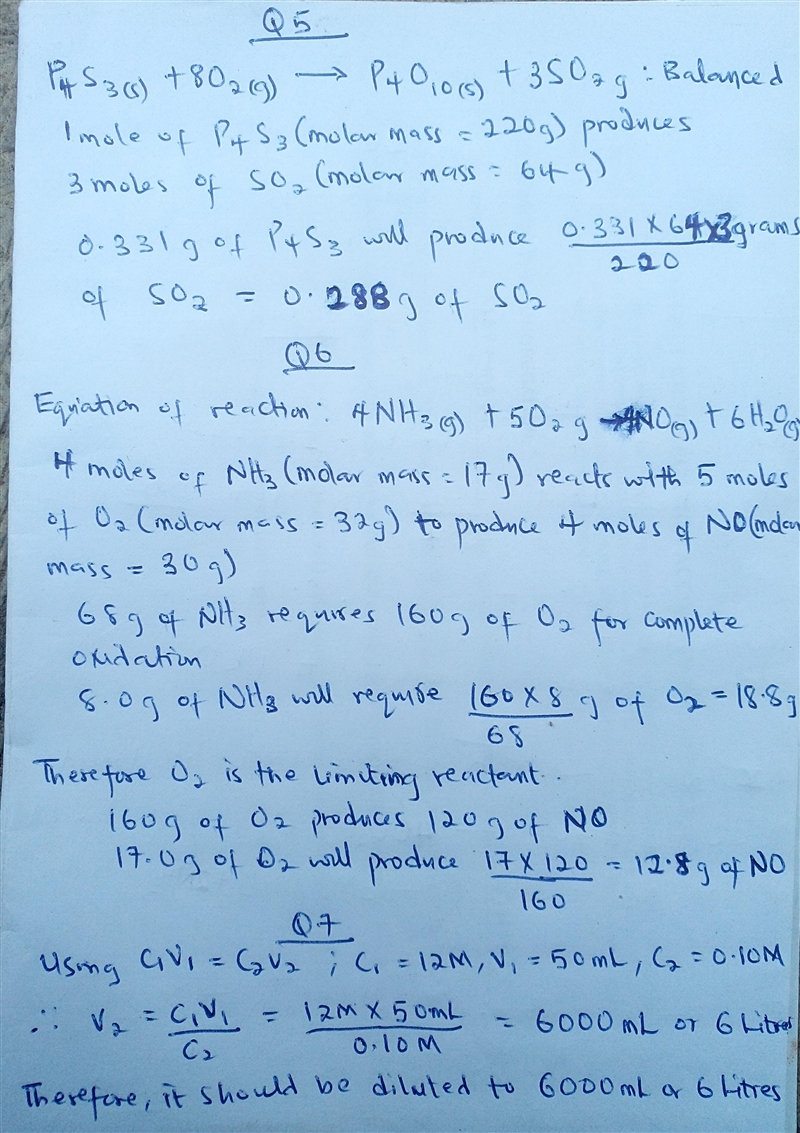 Q5
P4S3(s) + 8O2(g) → P4O10(s) + 3SO2 g : Balanced
1 mole of P4S3 (molar mass = 220g) produces
3 moles of SO2 (molar mass = 64g)
0.331 g of P4S3 will produce 0.331 x 64x3 grams
220
of SO2 = 0.288 g of SO2
Q6
Equation of reaction: 4NH3(g) + 5O2 g → 4NO(g) + 6H2O(g)
4 moles of NH3 (molar mass = 17g) reacts with 5 moles
of O2 (molar mass = 32g) to produce 4 moles of NO (molar
mass = 30g)
68g of NH3 requires 160g of O2 for complete
oxidation
8.0g of NH3 will require 160 x 8 g of O2 = 18.8g
68
Therefore O2 is the limiting reactant.
160g of O2 produces 120g of NO
17.0g of O2 will produce 17 x 120 = 12.8g of NO
160
Q7
Using C1V1 = C2V2 ; C1 = 12M, V1 = 50mL, C2 = 0.10M
∴ V2 = C1V1 = 12M x 50mL = 6000mL or 6 Litres
C2 0.10M
Therefore, it should be diluted to 6000mL or 6 Litres